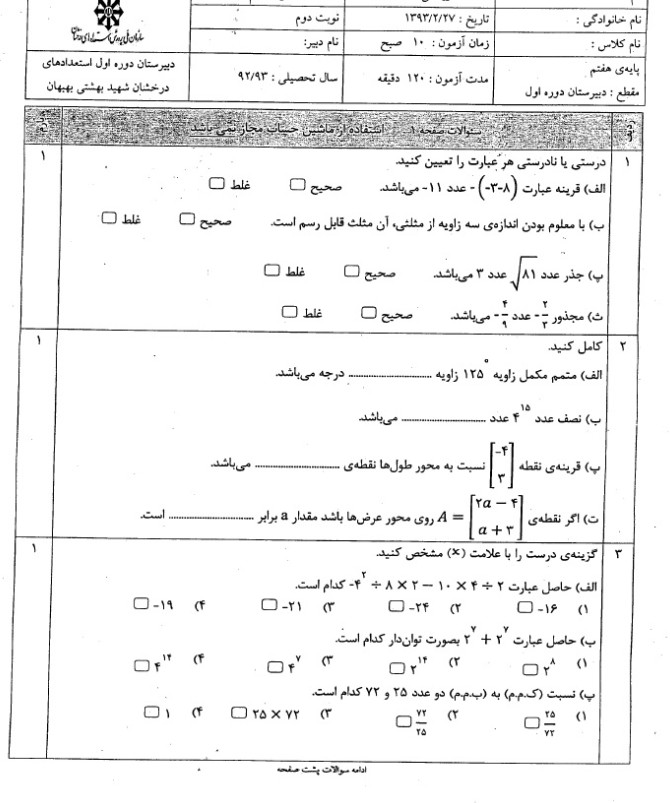 نام خانوادگی :
تاریخ : ۱۳۹۳/۲/۲۷
نوبت دوم
نام کلاس :
زمان آزمون : ۱۰ صبح
نام دبیر:
پایه‌ی هفتم
مقطع : دبیرستان دوره اول
مدت آزمون : ۱۲۰ دقیقه
سال تحصیلی : ۹۲/۹۳
دبیرستان دوره اول استعدادهای
درخشان شهید بهشتی بهبهان
سئوالات صفحه ۱ استفاده از ماشین حساب مجاز نمی باشد
۱ درستی یا نادرستی هر عبارت را تعیین کنید. ۱
الف) قرینه عبارت (۸-۳-)- عدد ۱۱- می‌باشد. صحیح □ غلط □
ب) با معلوم بودن اندازه‌ی سه زاویه از مثلثی، آن مثلث قابل رسم است. صحیح □ غلط □
پ) جذر عدد √۸۱ عدد ۳ می‌باشد. صحیح □ غلط □
ث) مجذور -۲/۳ عدد -۴/۹ می‌باشد. صحیح □ غلط □
۲ کامل کنید. ۱
الف) متمم مکمل زاویه ۱۲۵° زاویه .................... درجه می‌باشد.
ب) نصف عدد ۴^۱۵ عدد .................... می‌باشد.
پ) قرینه‌ی نقطه [-۴ ۳] نسبت به محور طول‌ها نقطه‌ی .................... می‌باشد.
ت) اگر نقطه‌ی A = [۲a − ۴ a + ۳] روی محور عرض‌ها باشد مقدار a برابر .................... است.
۳ گزینه‌ی درست را با علامت (×) مشخص کنید. ۱
الف) حاصل عبارت -۴^۲ ÷ ۸ × ۲ − ۱۰ × ۴ ÷ ۲ کدام است.
۱) -۱۶ □ ۲) -۲۴ □ ۳) -۲۱ □ ۴) -۱۹ □
ب) حاصل عبارت ۲^۷ + ۲^۷ بصورت توان‌دار کدام است.
۱) ۲^۸ □ ۲) ۲^۱۴ □ ۳) ۴^۷ □ ۴) ۴^۱۴ □
پ) نسبت (ک.م.م) به (ب.م.م) دو عدد ۲۵ و ۷۲ کدام است.
۱) ۲۵/۷۲ □ ۲) ۷۲/۲۵ □ ۳) ۲۵ × ۷۲ □ ۴) ۱ □
ادامه سوالات پشت صفحه